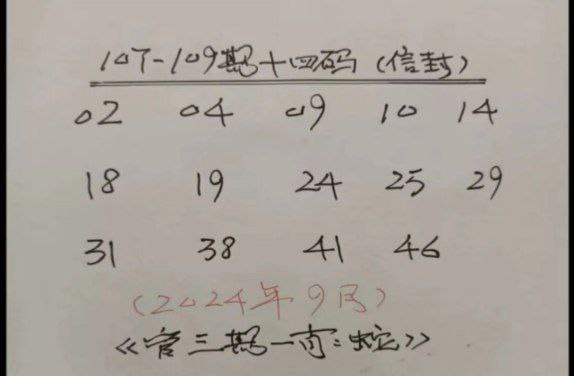 107-109期十四码（信封）
02 04 09 10 14
18 19 24 25 29
31 38 41 46
（2024年9月）
《管三期一肖：蛇》